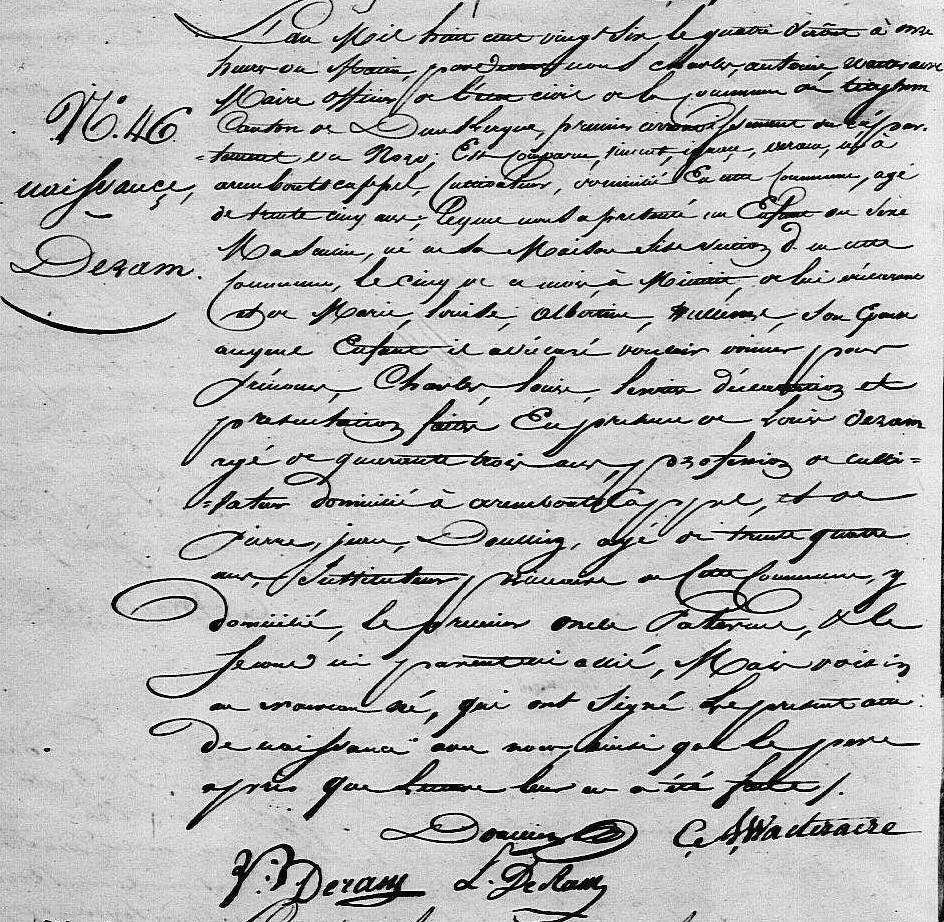 N.° 46
naissance,
Deram.
L'an Mil huit cent vingt six le quatre d'août à onze
heures du Matin, pardevant nous Charles, antoine, Wacteraere
Maire officier de l'état civil de la Commune de
Canton de Dunkerque, premier arrondissement du dépar-
-tement du Nord, Est comparu, vincent, ignace, deram, né à
armboutscappel, Cultivateur, domicilié En cette Commune, agé
de trente cinq ans, lequel nous a presenté un Enfant du sexe
Masculin, né en sa Maison sise section d. en cette
Commune, le cinq de ce mois, à Minuit, de lui déclarant
et de Marie, louise, albertine, Son Epouse
auquel Enfant il a déclaré vouloir donner, pour
prénoms, Charles, louis, lesdites déclaration et
présentation faites En présence de Louis deram
agé de quarante trois ans, profession de culti-
-vateur domicilié à armboutsCappel, et de
Pierre, agé de trente quatre
ans, Instituteur primaire de Cette Commune, y
domicilié, le premier oncle Paternel, & le
second ni parent ni allié, Mais voisin
au nouveau né, qui ont Signé le present acte
de naissance avec nous ainsi que le pere
après que Lecture leur en a été faite /.
C. A. Wacteraere
V. I. Deram L. DeRam